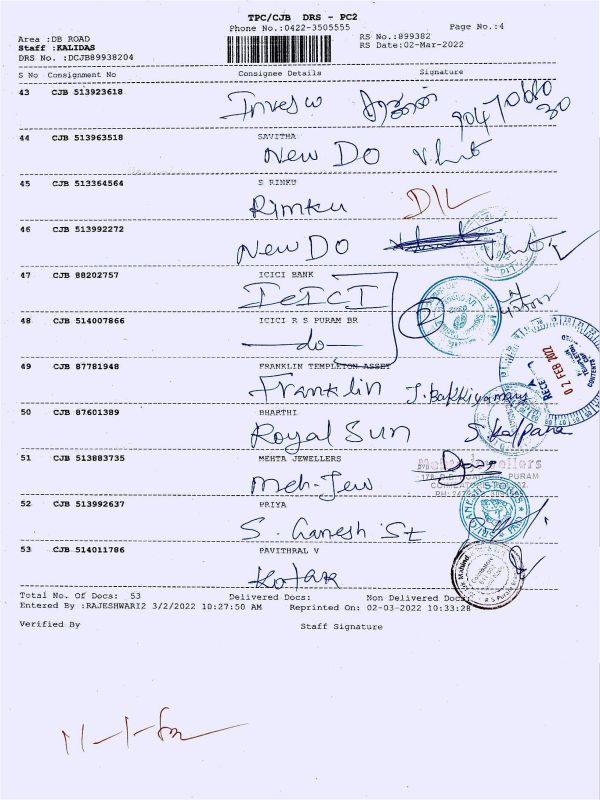 TPC/CJB DRS - PC2
Phone No.:0422-3505555
Page No.:4
Area :DB ROAD
RS No.:899382
Staff :KALIDAS
RS Date:02-Mar-2022
DRS No. :DCJB89938204
S No Consignment No Consignee Details Signature
43 CJB 513923618
Invesco
44 CJB 513963518 SAVITHA
New DO
45 CJB 513364564 S RINKU
Rimku DIL
46 CJB 513992272
New DO
47 CJB 88202757 ICICI BANK
ICICI
48 CJB 514007866 ICICI R S PURAM BR
—do— 2
49 CJB 87781948 FRANKLIN TEMPLETON ASSET
Franklin J. Bakkiyamary
02 FEB 2022
50 CJB 87601389 BHARTHI
Royal Sun S. Kalpana
51 CJB 513883735 MEHTA JEWELLERS
Meh-Jew
52 CJB 513992637 PRIYA
S. Ganesh St
SRI GANESH STORES
53 CJB 514011786 PAVITHRAL V
Kotak
Total No. Of Docs: 53 Delivered Docs: Non Delivered Docs:
Entered By :RAJESHWARI2 3/2/2022 10:27:50 AM Reprinted On: 02-03-2022 10:33:28
Verified By Staff Signature